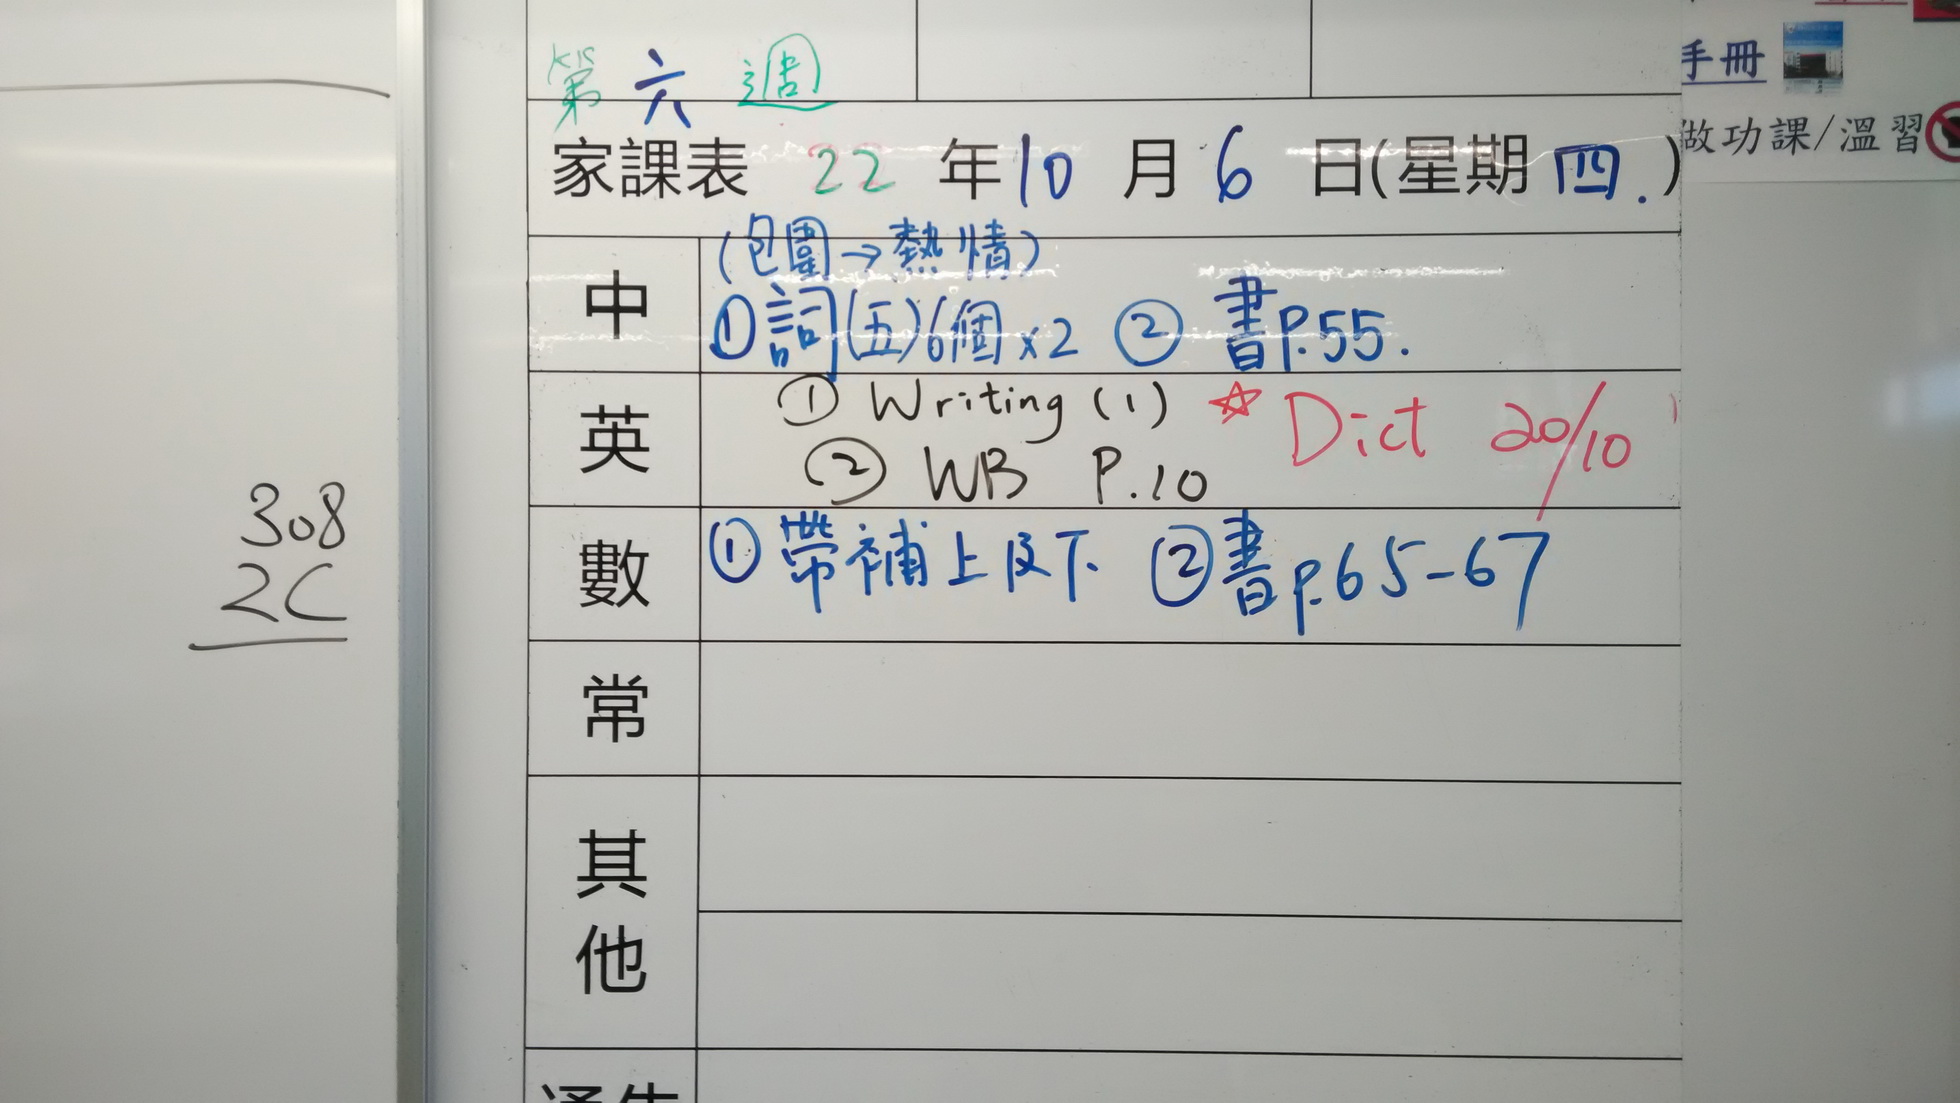 第六週
手冊
做功課/溫習
家課表 22 年 10 月 6 日(星期 四.)
中
(包圍→熱情)
① 詞(五)6個x2 ② 書P.55.
英
① Writing (1) ☆ Dict 20/10
② WB P.10
數
① 帶補上及下 ② 書p.65-67
常
其他
308
2C